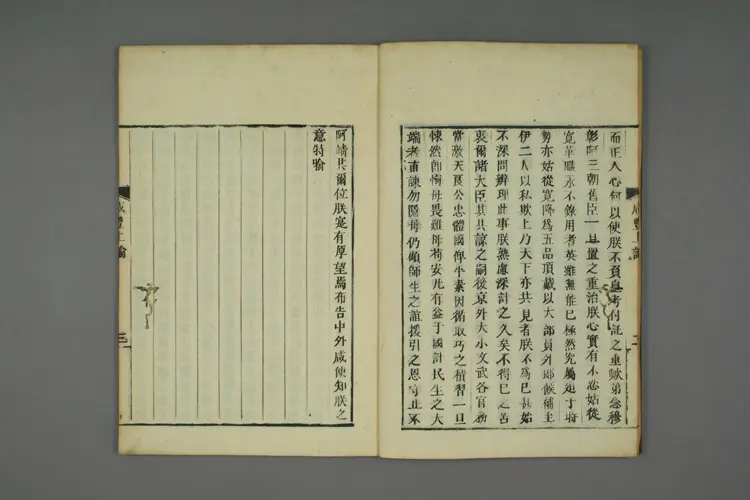 而正人心何以使朕不負皇考付託之重歟第念穆
彰阿三朝舊臣一旦置之重治朕心實有不忍姑從
寬革職永不錄用耆英雖無能已極然究屬迫于時
勢亦姑從寬降為五品頂戴以六部員外郎候補至
伊二人以私欺上乃天下亦共見者朕不為已甚姑
不深問辨理此事朕熟慮深計之久矣不得已之苦
衷爾諸大臣其共諒之嗣後京外大小文武各官務
當激天良公忠體國俾平素因循取巧之積習一旦
悚然即悔毋畏難毋苟安凡有益于國計民生之大
端者直諫勿隱毋仍顧師生之誼援引之恩守正不
阿靖共爾位朕寔有厚望焉布告中外咸使知朕之
意特諭
咸豐上諭